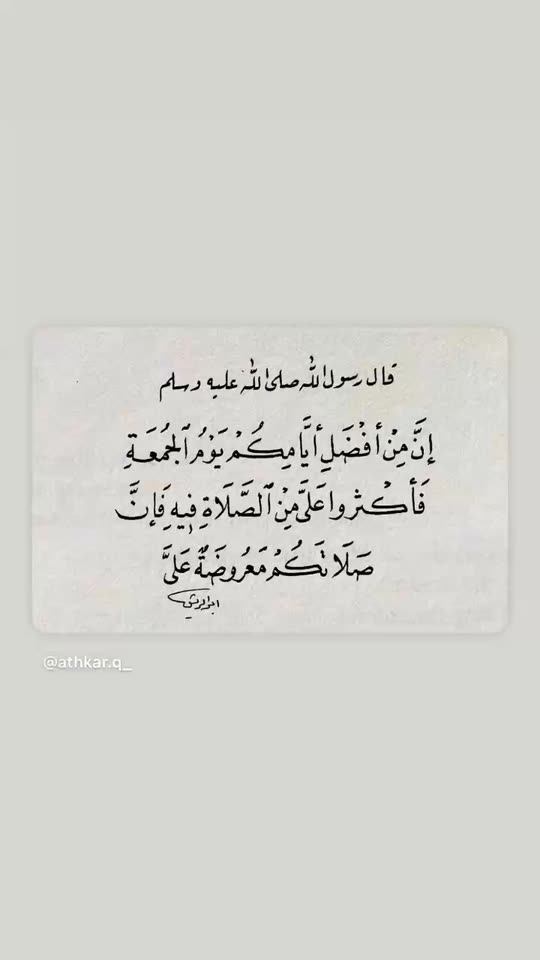 قال رسول الله صلى الله عليه وسلم
إِنَّ مِنْ أَفْضَلِ أَيَّامِكُمْ يَوْمُ ٱلْجُمُعَةِ
فَأَكْثِرُوا عَلَيَّ مِنَ ٱلصَّلَاةِ فِيهِ فَإِنَّ
صَلَاتَكُمْ مَعْرُوضَةٌ عَلَيَّ
@athkar.q_